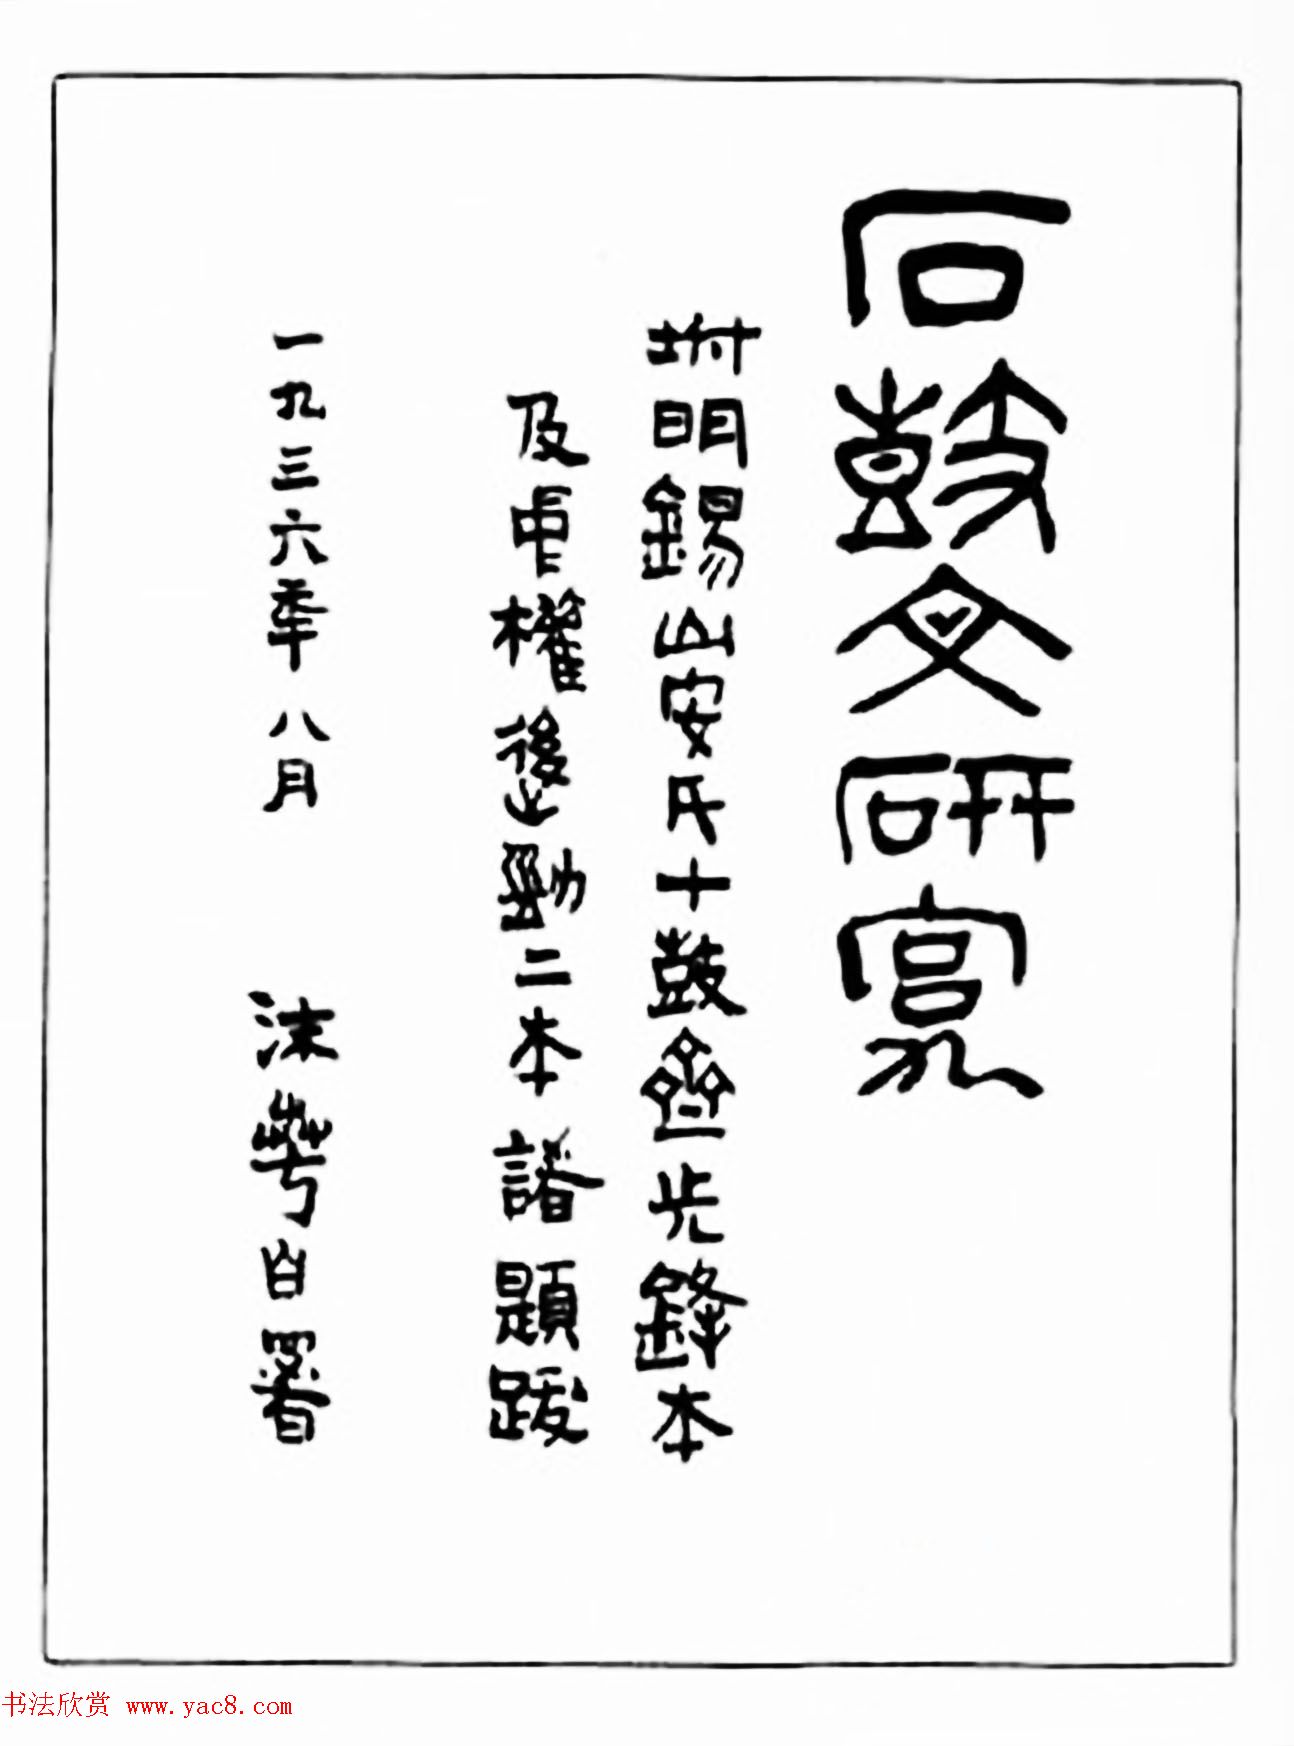 石鼓文研究
坿明錫山安氏十鼓齋先鋒本
及中權後勁二本諸題跋
一九三六年八月 沫若自署
书法欣赏 www.yac8.com